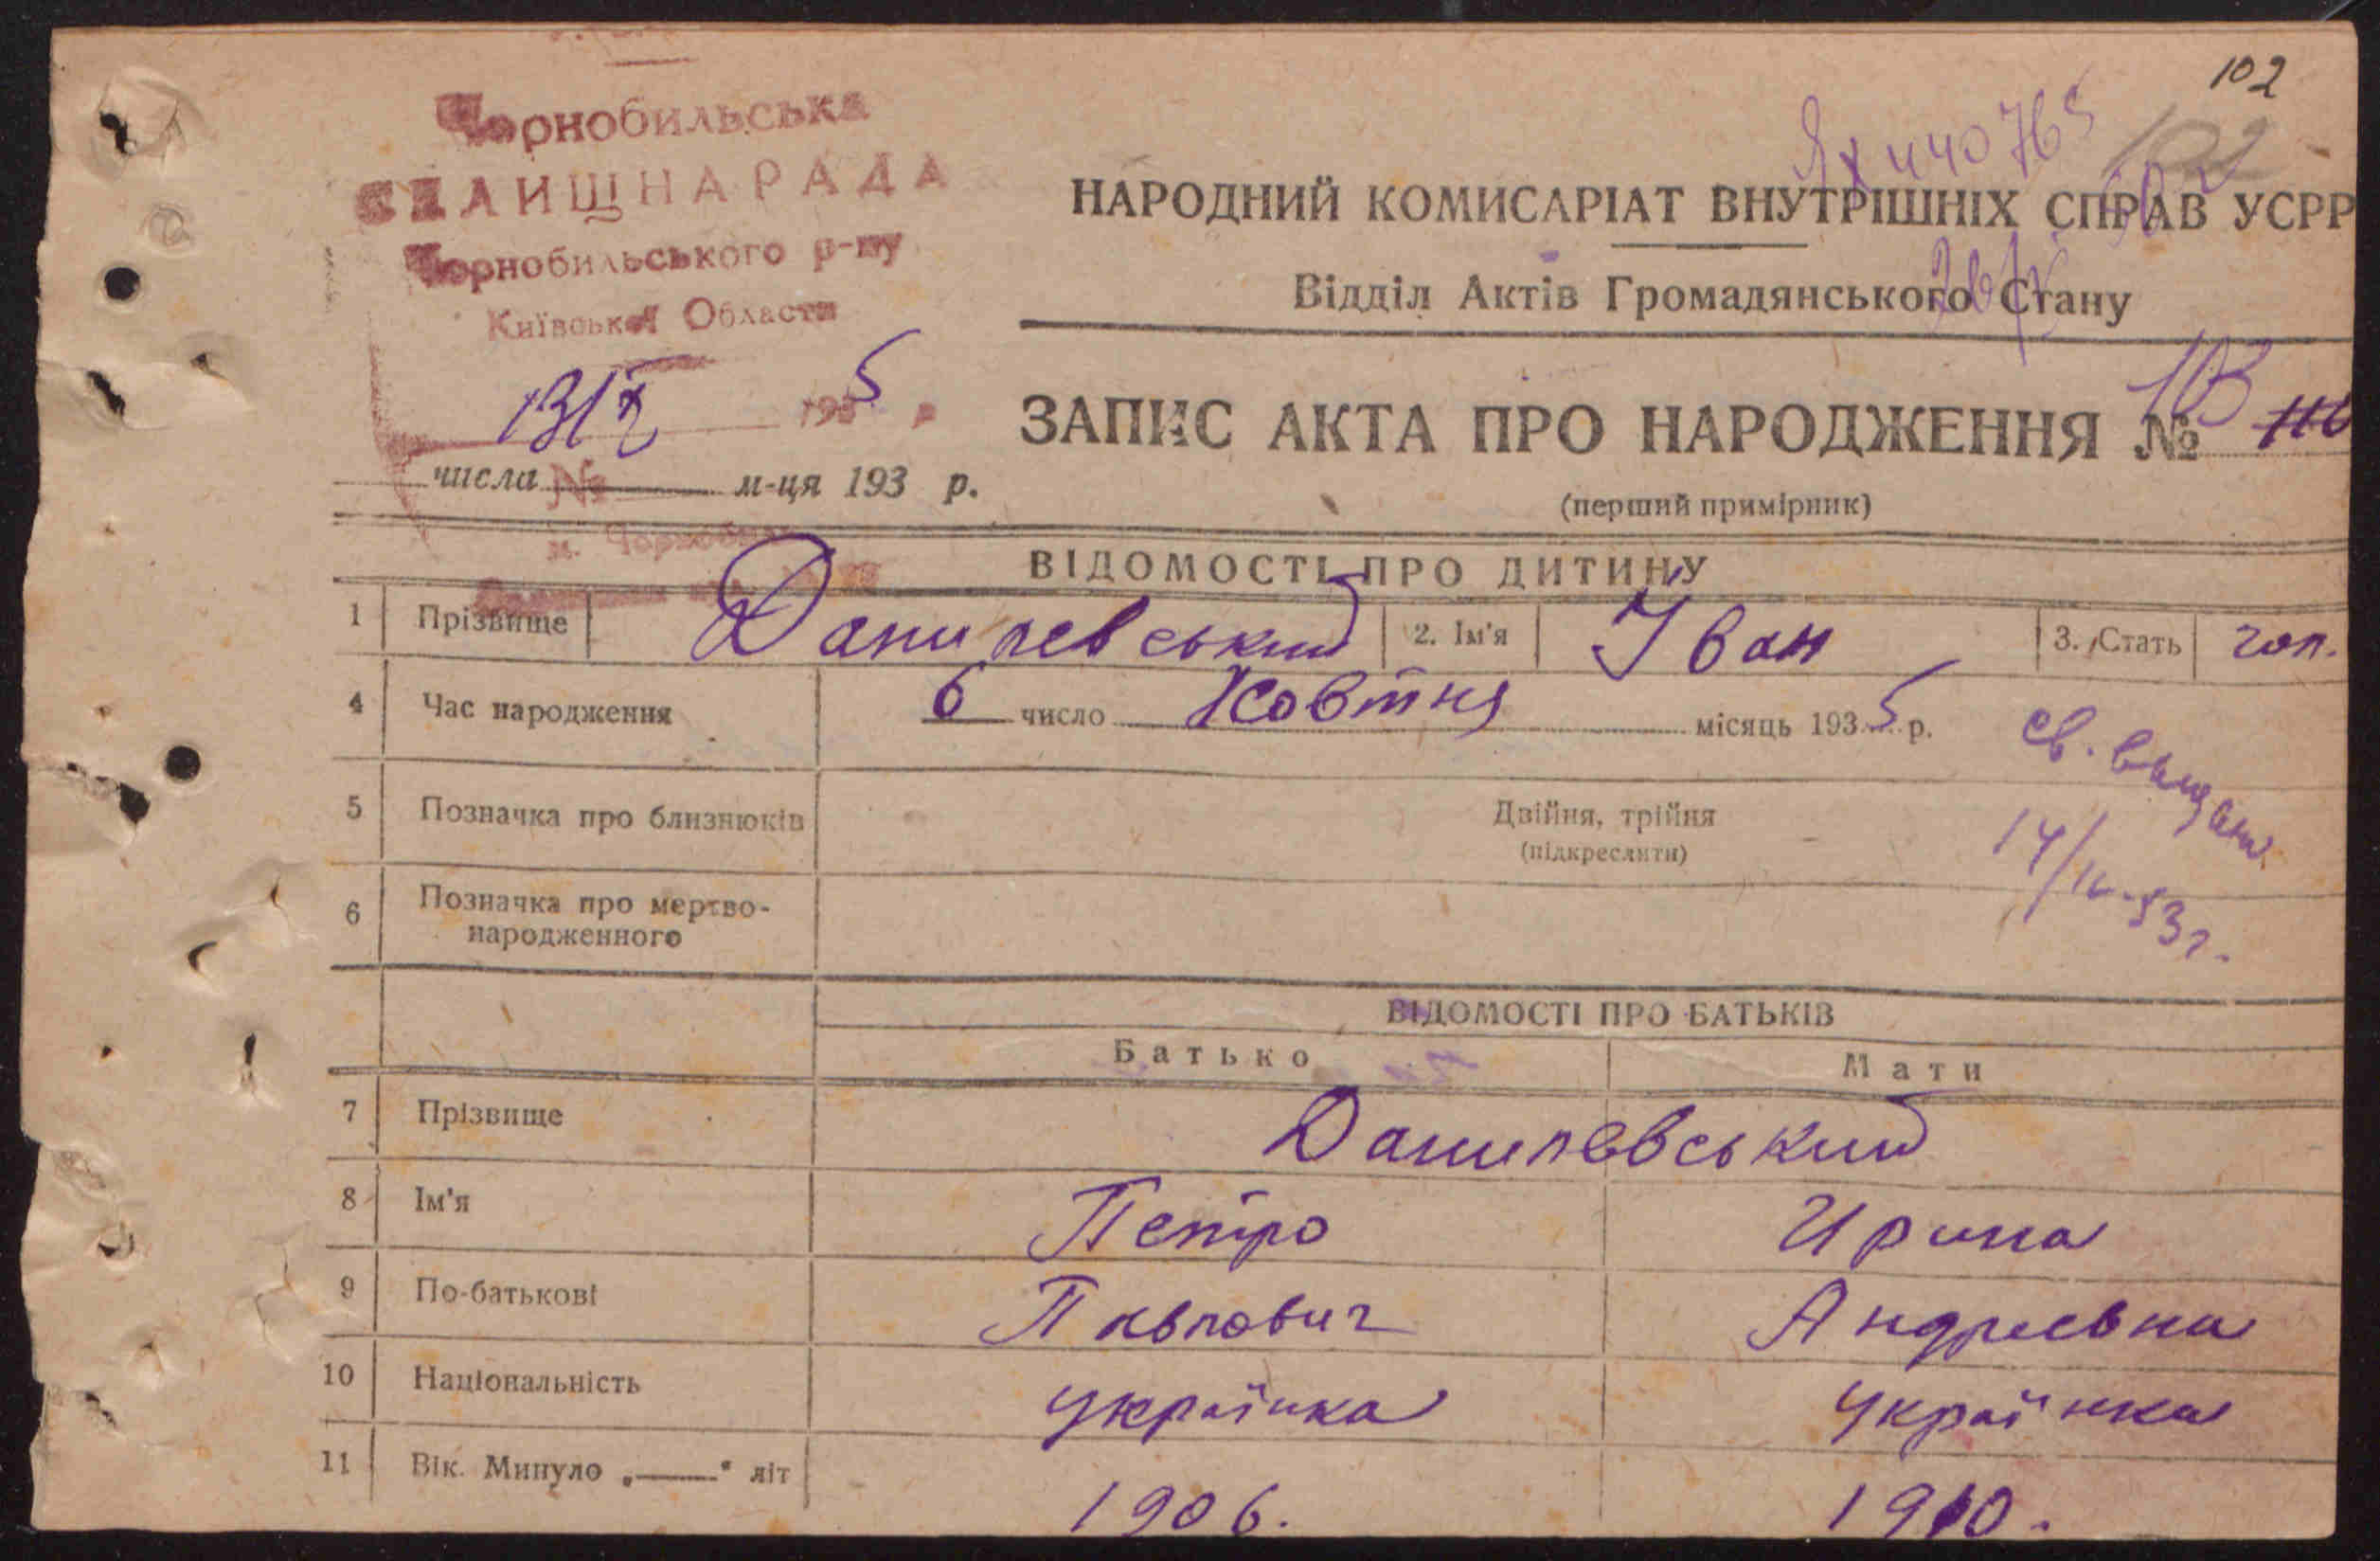 102
Чорнобильська
СЕЛИЩНА РАДА
Чорнобильського р-ну
Київської Области
13/X 1935 р
№
числа м-ця 193 р.
м. Чорнобиль
НАРОДНИЙ КОМИСАРІАТ ВНУТРІШНІХ СПРАВ УСРР
Відділ Актів Громадянського Стану
ЗАПИС АКТА ПРО НАРОДЖЕННЯ № 103
(перший примірник)
ВІДОМОСТІ ПРО ДИТИНУ
1 Прізвище Данилевський 2. Ім'я Іван 3. Стать чол.
4 Час народження 6 число Жовтня місяць 1935 р.
св. выдано
5 Позначка про близнюків Двійня, трійня
(підкреслити)
6 Позначка про мертво-
народженного
ВІДОМОСТІ ПРО БАТЬКІВ
Батько Мати
7 Прізвище Данилевський
8 Ім'я Петро Ирина
9 По-батькові Павлович Андреевна
10 Національність українка українка
11 Вік. Минуло „ — “ літ 1906. 1910.